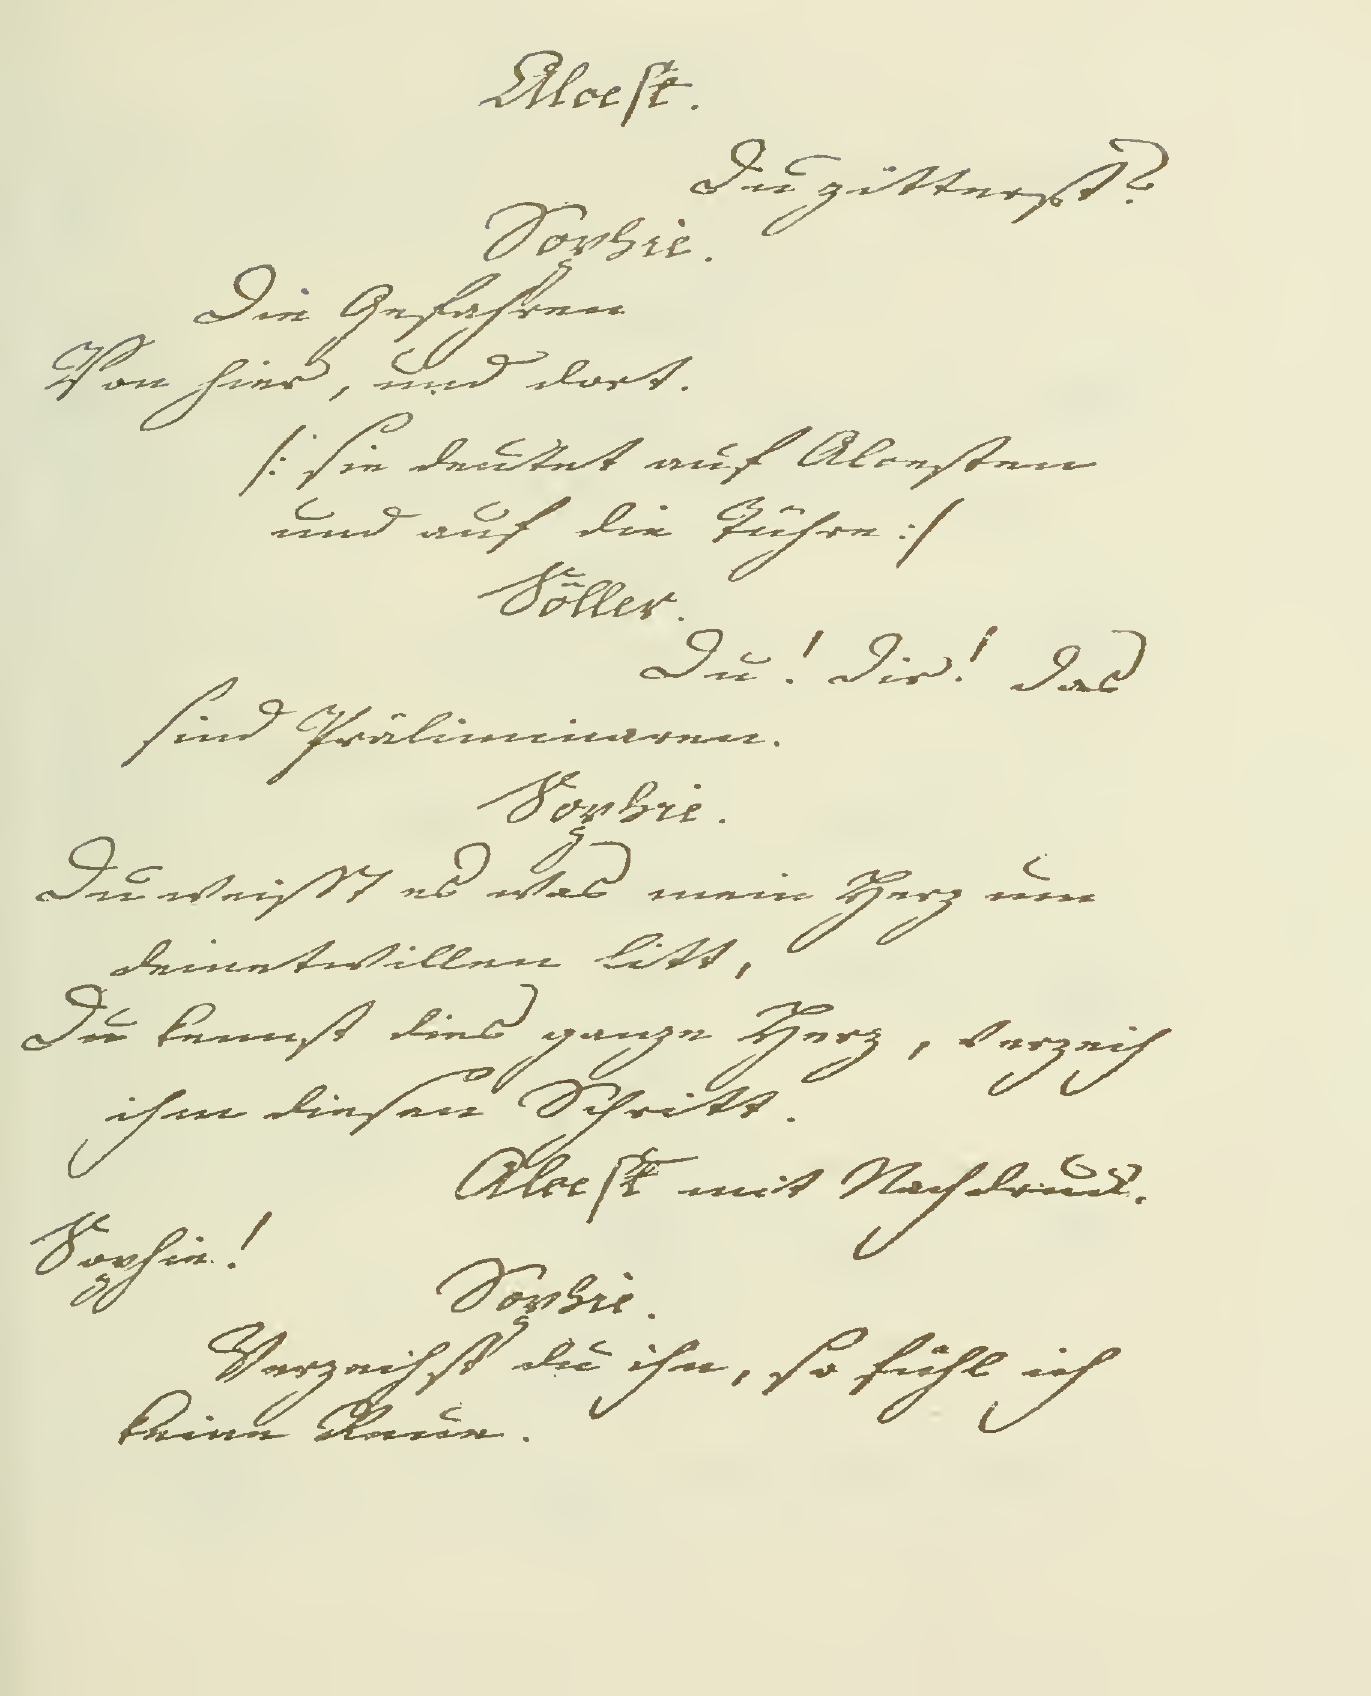 Alcest.
Du zitterst?
Sophie.
Die Gefahren
Von hier, und dort.
/: sie deutet auf Alcesten
und auf die Tühre :/
Söller.
Du! Dir! Das
sind Präliminaren.
Sophie.
Du weisst es was mein Herz um
deinetwillen litt,
Du kennst dies ganze Herz, verzeih
ihm diesen Schritt.
Alcest mit Nachdruck.
Sophie!
Sophie.
Verzeihst du ihm, so fühl ich
keine Reue.